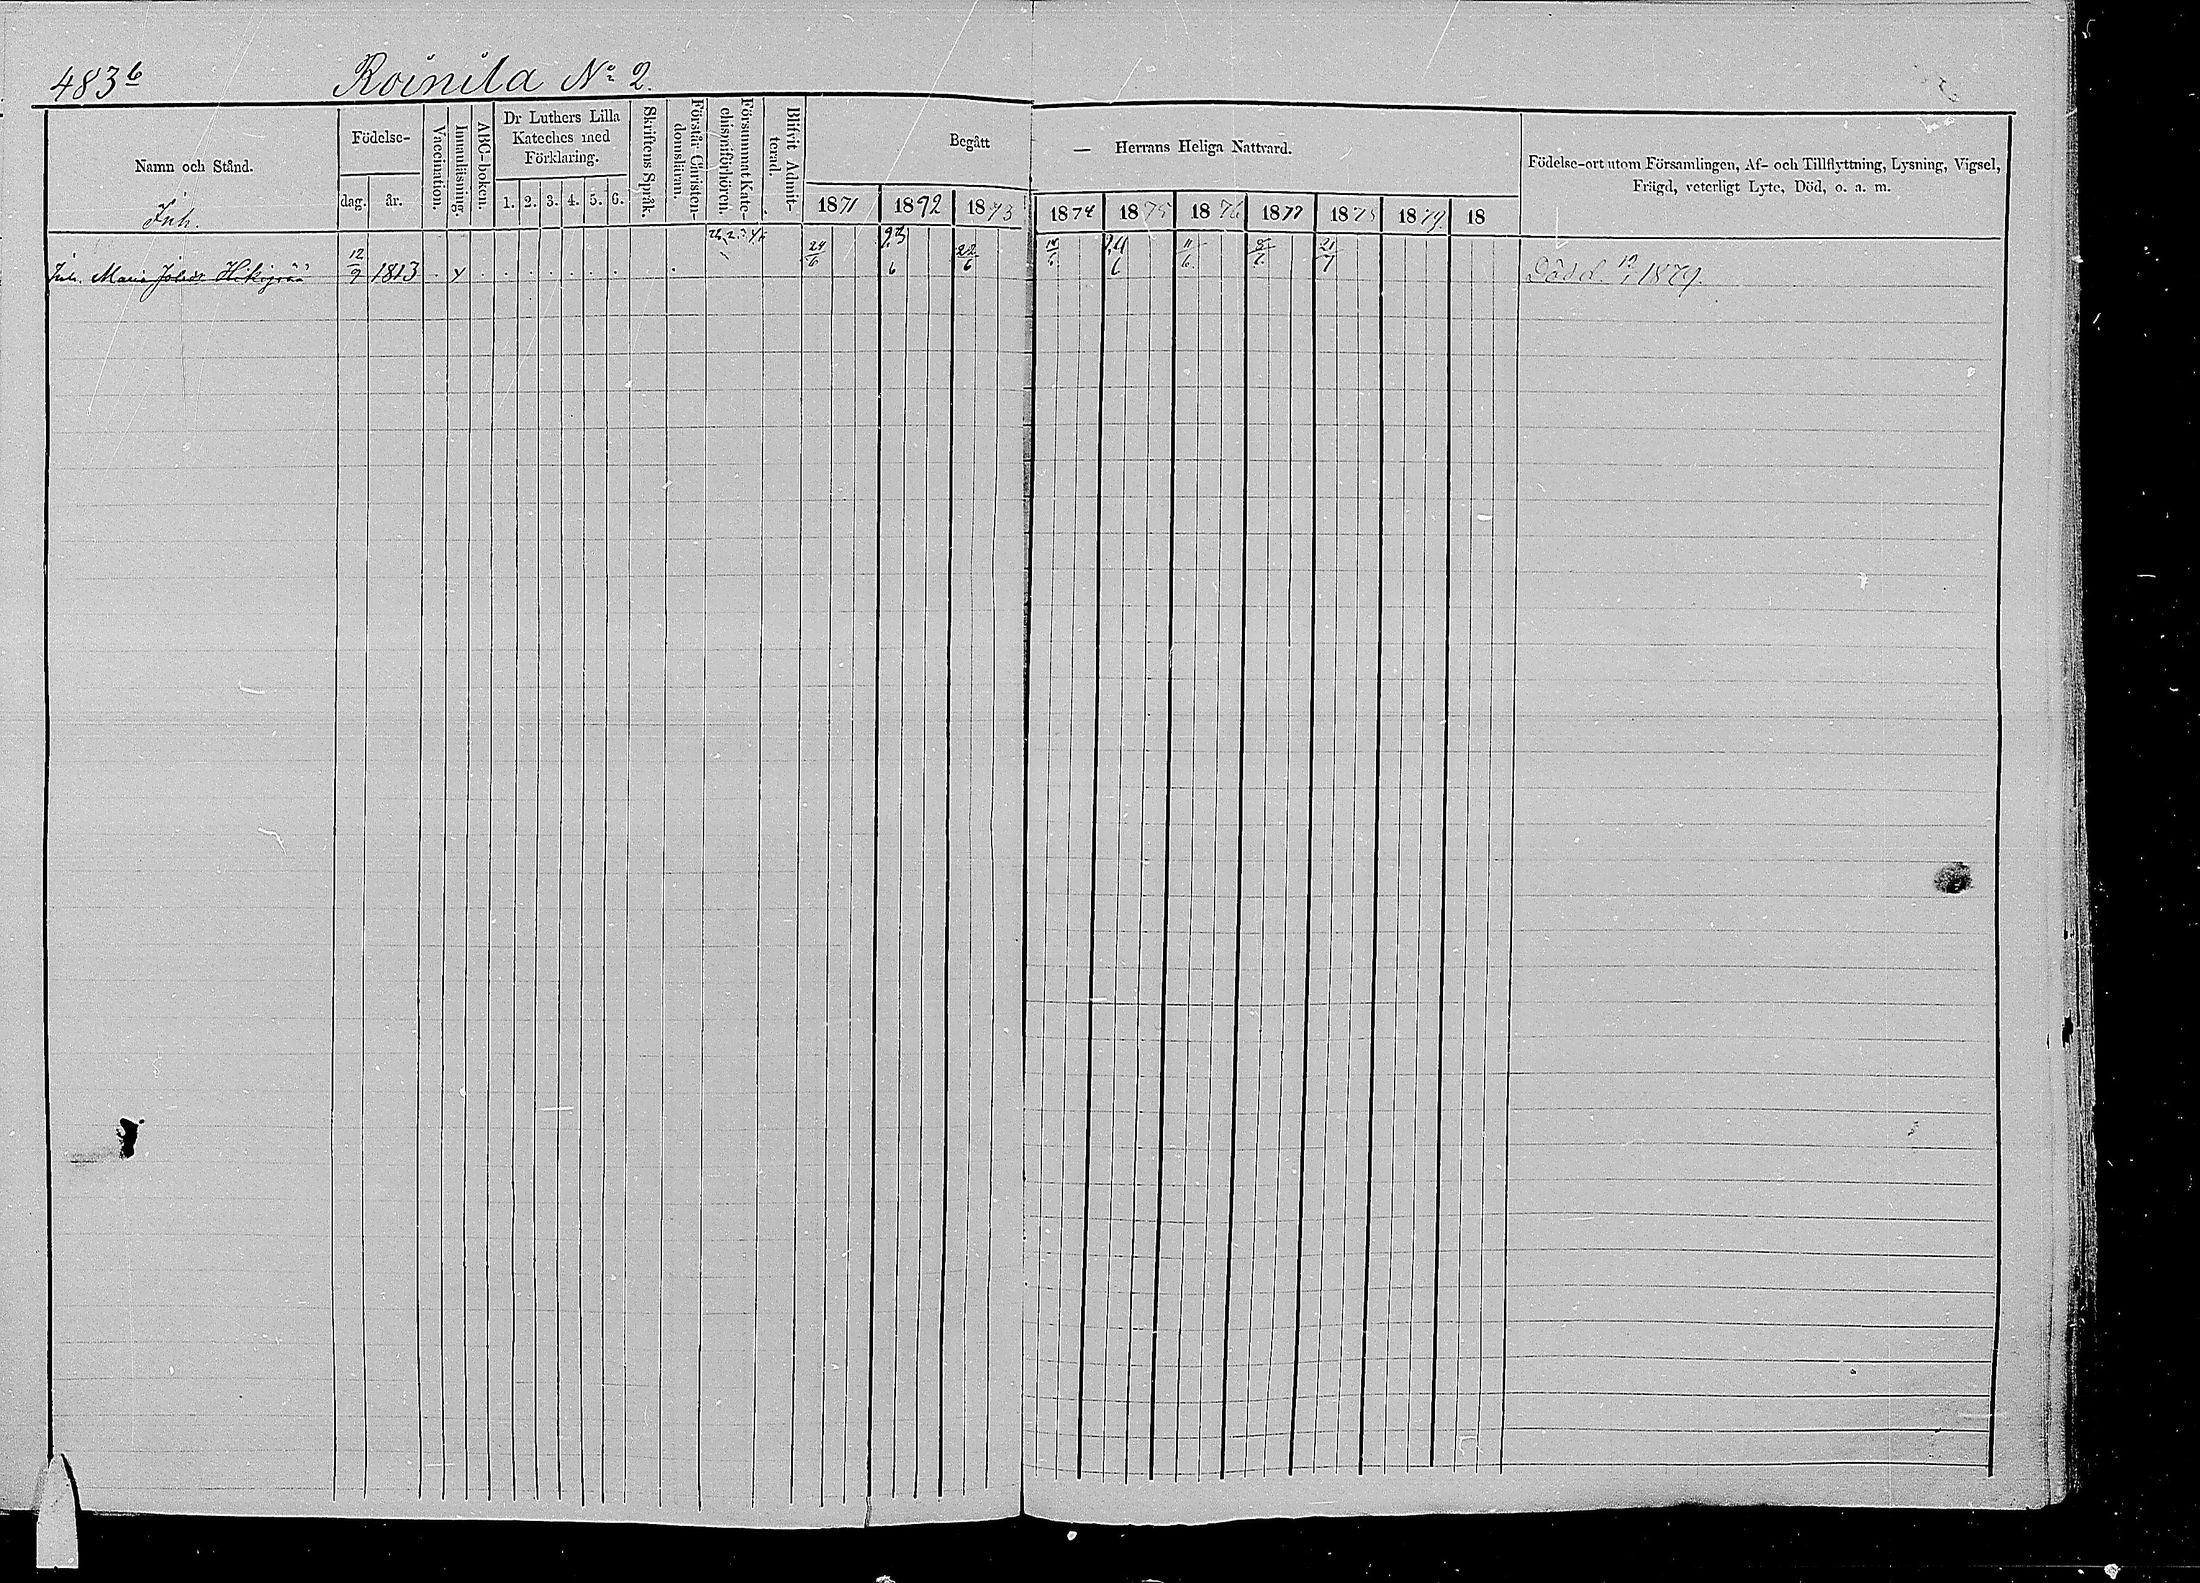 483b Roinila No 2.
Namn och Stånd.
Födelse-
dag. år.
Vaccination.
Innanläsning.
ABC-boken.
Dr Luthers Lilla
Kateches med
Förklaring.
1. 2. 3. 4. 5. 6.
Skriftens Språk.
Förstår Christen-
domsläran.
Försummat Kate-
chismiförhören.
Blifvit Admit-
terad.
Begått — Herrans Heliga Nattvard.
1871 1872 1873 1874 1875 1876 1877 1878 1879. 18
Födelse-ort utom Församlingen, Af- och Tillflyttning, Lysning, Vigsel,
Frägd, veterligt Lyte, Död, o. a. m.
Inh.
Inh. Maria 12/9 1813 24/6 23/6 22/6 11/6 21/7 Död d. 1879.